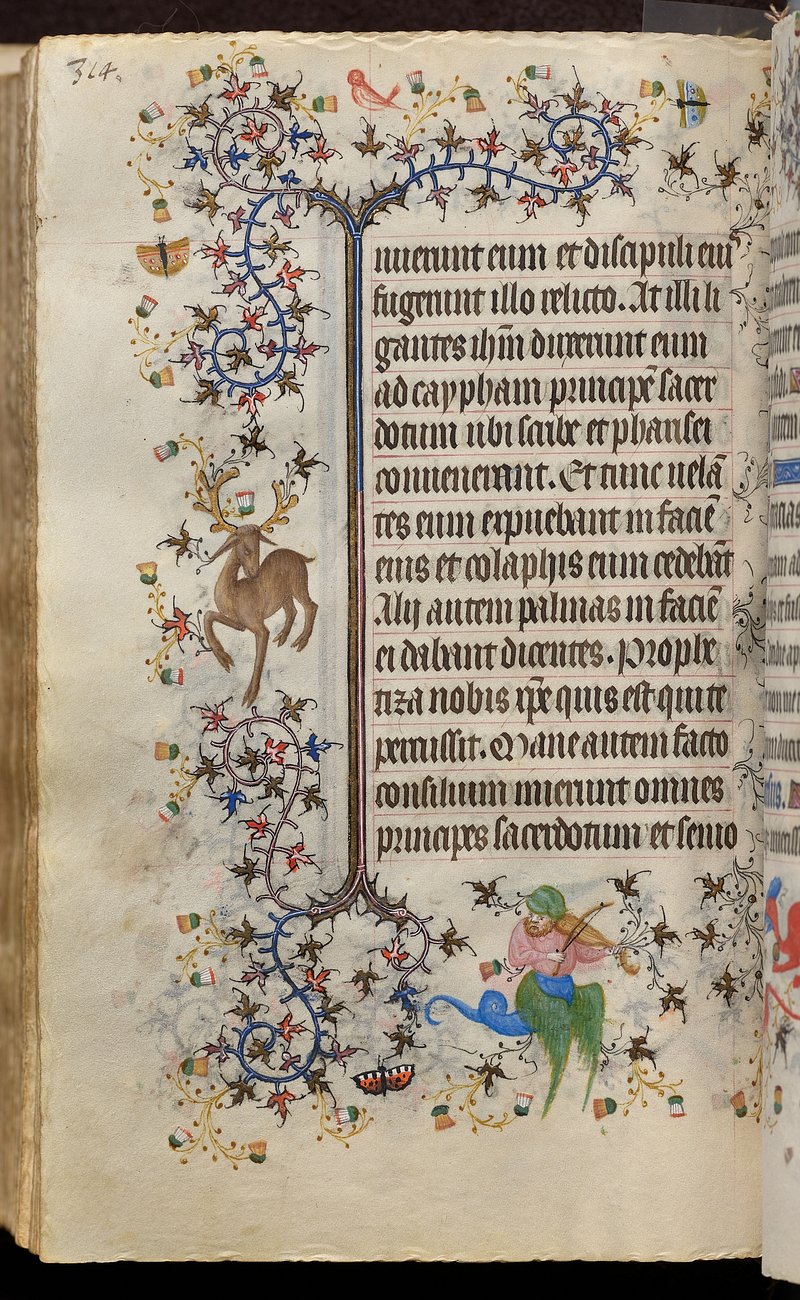 314.
nuerunt eum et discipuli eius
fugerunt illo relicto. At illi li
gantes ihm̄ duxerunt eum
ad caypham principē sacer
dotum ubi scribe et pharisei
conuenerant. Et tunc uelā
tes eum expuebant in faciē
eius et colaphis eum cedebāt
Alij autem palmas in faciē
ei dabant dicentes. Prophe
tiza nobis xp̄e quis est qui te
percussit. Mane autem facto
consilium inierunt omnes
principes sacerdotum et senio